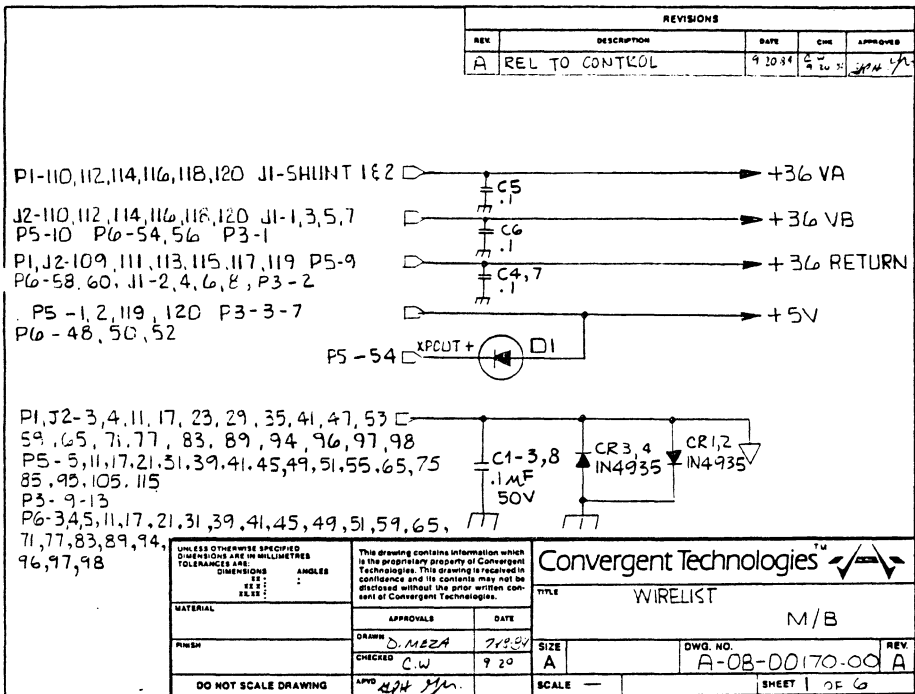 REVISIONS
REV. DESCRIPTION DATE CHK APPROVED
A REL TO CONTROL 9 20 84
P1-110,112,114,116,118,120 J1-SHUNT 1&2
+36 VA
C5
.1
J2-110,112,114,116,118,120 J1-1,3,5,7
P5-10 P6-54,56 P3-1
+36 VB
C6
.1
P1,J2-109,111,113,115,117,119 P5-9
P6-58,60, J1-2,4,6,8, P3-2
+36 RETURN
C4,7
.1
P5-1,2,119,120 P3-3-7
P6-48,50,52
+5V
P5-54 XPCUT+ D1
P1,J2-3,4,11,17,23,29,35,41,47,53
59,65,71,77,83,89,94,96,97,98
P5-5,11,17,21,31,39,41,45,49,51,55,65,75
85,95,105,115
P3-9-13
P6-3,4,5,11,17,21,31,39,41,45,49,51,59,65,
71,77,83,89,94,
96,97,98
C1-3,8
.1MF
50V
CR3,4
IN4935
CR1,2
IN4935
UNLESS OTHERWISE SPECIFIED
DIMENSIONS ARE IN MILLIMETRES
TOLERANCES ARE:
DIMENSIONS ANGLES
MATERIAL
FINISH
DO NOT SCALE DRAWING
This drawing contains information which
is the proprietary property of Convergent
Technologies. This drawing is received in
confidence and its contents may not be
disclosed without the prior written con-
sent of Convergent Technologies.
APPROVALS DATE
DRAWN D. MEZA
CHECKED C.W 9 20
APVD
Convergent Technologies™
TITLE WIRELIST
M/B
SIZE A
DWG. NO. A-08-00170-00
REV. A
SCALE —
SHEET 1 OF 6